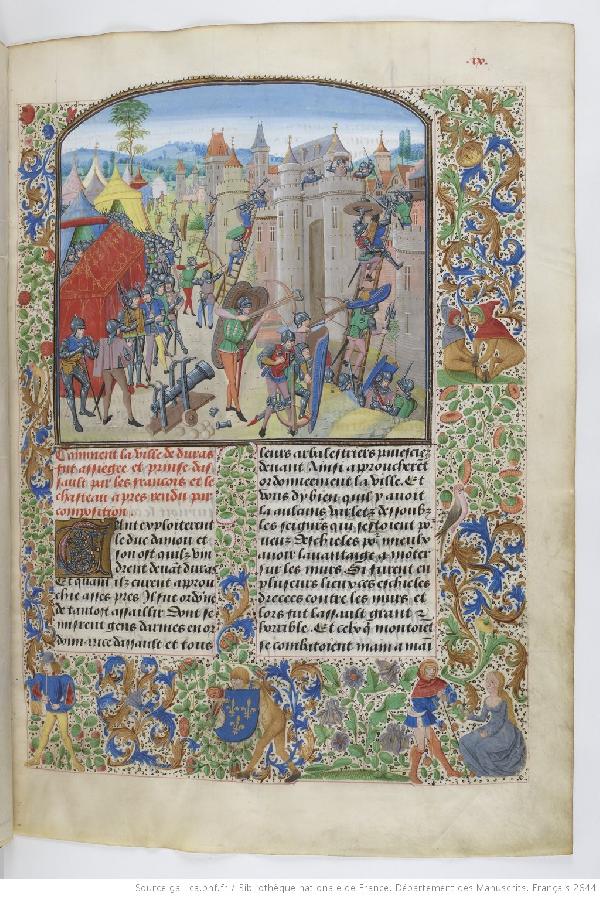 .ix.
Comment la ville de duras
fut assiegee et prinse das
sault par les francois et le
chasteau apres rendu par
composition
Tant exploiterent
le duc daniou et
son ost quilz vin
drent deuant duras
Et quant ilz eurent aprou
chie asses pres Il fut ordõne
de tantost assaillir Dont se
mistrent gens darmes en or
donnance dassault et tous
leurs arbalestriers pauesciez
deuant Ainsi aproucherent
ordonneement la ville. Et
vous dy bien quil y auoit
la aulcuns varletz dessoubz
les seigns qui sestoient po
ueuz deschieles põ mieulx
auoir lauantage et monter
sur les murs. Et furent en
plusieurs lieux ces eschieles
drecees contre les murs et
lors fut lassault grant et
horrible. Et ceulx q̃ montoiẽt
se combatoient main a mai
Source gallica.bnf.fr / Bibliothèque nationale de France. Département des Manuscrits. Français 2644